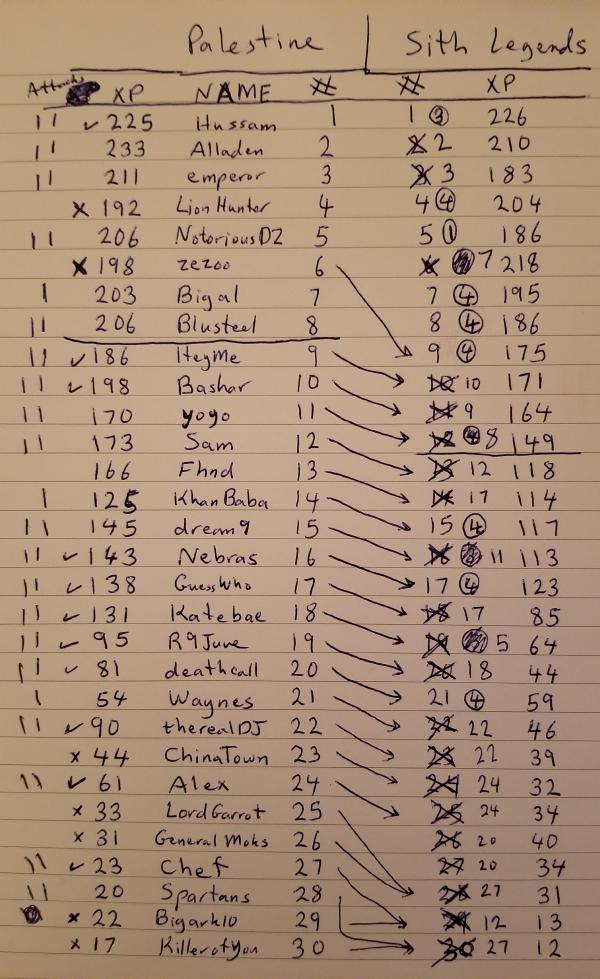 Palestine | Sith Legends
Attacks XP NAME # # XP
11 ✓ 225 Hussam 1 1 ③ 226
11 233 Alladen 2 2 210
11 211 emperor 3 3 183
x 192 LionHunter 4 4 ④ 204
11 206 NotoriousDZ 5 5 ① 186
x 198 zezoo 6 7 218
1 203 Bigal 7 7 ④ 195
11 206 Blusteel 8 8 ④ 186
11 ✓ 186 ItegMe 9 9 ④ 175
11 ✓ 198 Bashar 10 10 171
11 170 yogo 11 9 164
11 173 Sam 12 8 149
166 Fhnd 13 12 118
1 125 KhanBaba 14 17 114
11 145 dream9 15 15 ④ 117
11 ✓ 143 Nebras 16 11 113
11 ✓ 138 GuessWho 17 17 ④ 123
11 ✓ 131 Katebae 18 17 85
11 ✓ 95 R9June 19 5 64
11 ✓ 81 deathcall 20 18 44
1 54 Waynes 21 21 ④ 59
11 ✓ 90 therealDJ 22 22 46
x 44 ChinaTown 23 22 39
11 ✓ 61 Alex 24 24 32
x 33 LordGarrot 25 24 34
x 31 General Moks 26 20 40
11 ✓ 23 Chef 27 20 34
11 20 Spartans 28 27 31
x 22 Bigark10 29 12 13
x 17 Killerofyou 30 27 12